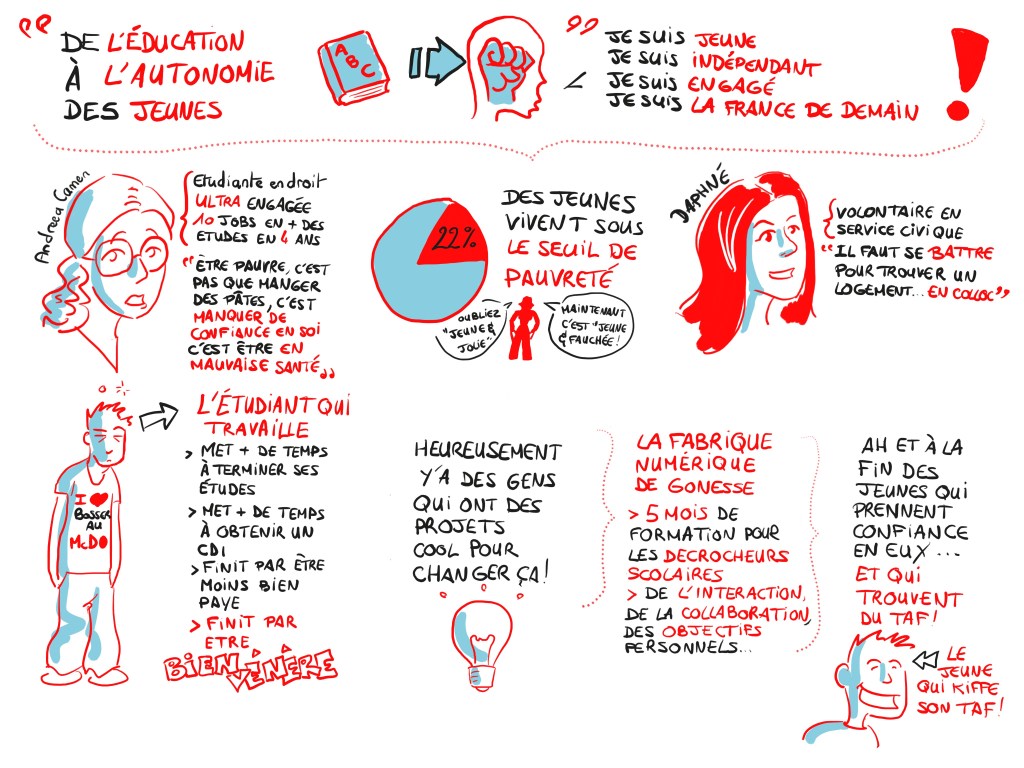 DE L'ÉDUCATION
À L'AUTONOMIE
DES JEUNES
ABC
JE SUIS JEUNE
JE SUIS INDÉPENDANT
JE SUIS ENGAGÉ
JE SUIS LA FRANCE DE DEMAIN
!
Andraea Camen
Etudiante en droit
ULTRA ENGAGÉE
10 JOBS EN + DES
ETUDES EN 4 ANS
"ÊTRE PAUVRE, C'EST
PAS QUE MANGER
DES PÂTES, C'EST
MANQUER DE
CONFIANCE EN SOI
C'EST ÊTRE EN
MAUVAISE SANTÉ"
22%
DES JEUNES
VIVENT SOUS
LE SEUIL DE
PAUVRETÉ
OUBLIEZ
"JEUNE &
JOLIE"
MAINTENANT
C'EST "JEUNE
& FAUCHÉE!
DAPHNÉ
VOLONTAIRE EN
SERVICE CIVIQUE
"IL FAUT SE BATTRE
POUR TROUVER UN
LOGEMENT... EN COLLOC"
I ❤
BOSSER
AU
McDO
L'ÉTUDIANT QUI
TRAVAILLE
> MET + DE TEMPS
À TERMINER SES
ÉTUDES
> MET + DE TEMPS
À OBTENIR UN
CDI
> FINIT PAR ÊTRE
MOINS BIEN
PAYE
> FINIT PAR
ETRE
BIEN VENERE
HEUREUSEMENT
Y'A DES GENS
QUI ONT DES
PROJETS
COOL POUR
CHANGER ÇA!
LA FABRIQUE
NUMÉRIQUE
DE GONESSE
> 5 MOIS DE
FORMATION POUR
LES DECROCHEURS
SCOLAIRES
> DE L'INTERACTION,
DE LA COLLABORATION,
DES OBJECTIFS
PERSONNELS...
AH ET À LA
FIN DES
JEUNES QUI
PRENNENT
CONFIANCE
EN EUX...
ET QUI
TROUVENT
DU TAF!
LE
JEUNE
QUI KIFFE
SON TAF!